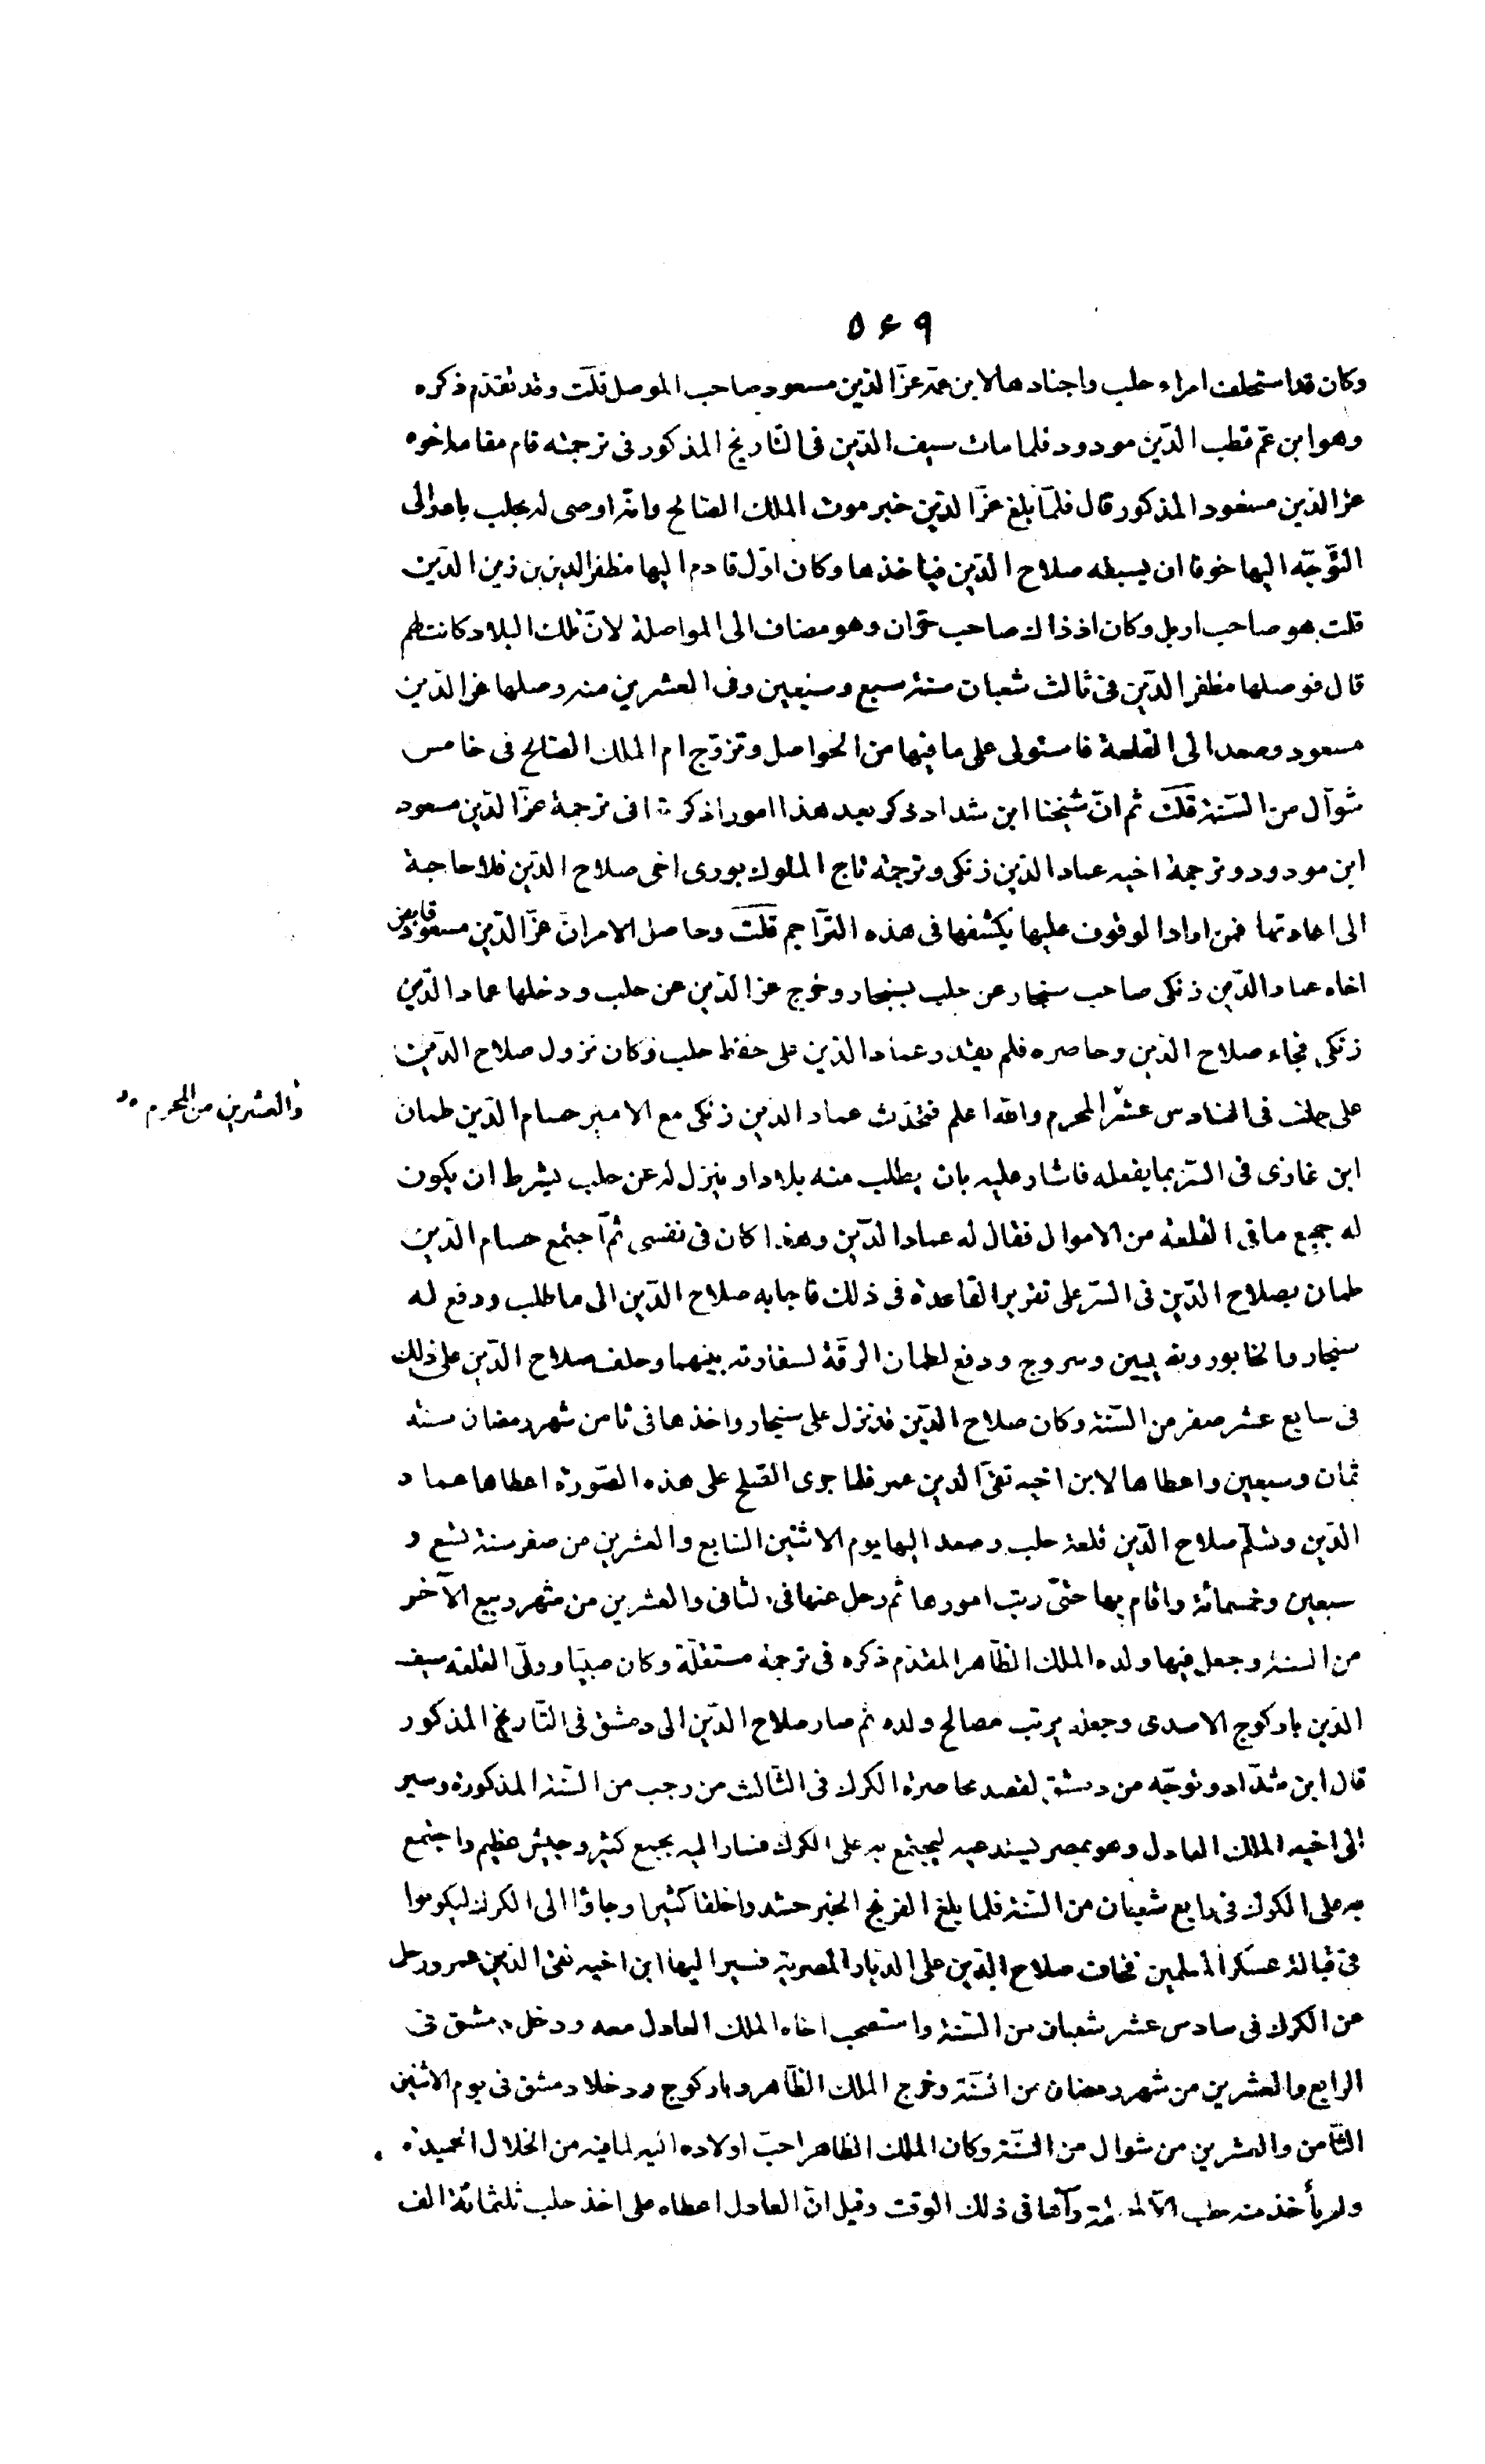 ٥٤٩
وكان قد استحلف امراء حلب واجنادها لابن عمّه عزّ الدّين مسعود صاحب الموصل قلت وقد تقدّم ذكره
وهو ابن عمّ قطب الدّين مودود فلما مات سيف الدّين فى التاريخ المذكور فى ترجمته قام مقامه اخوه
عز الدّين مسعود المذكور قال فلمّا بلغ عزّ الدّين خبر موت الملك الصالح وانّه اوصى له بحلب بادر الى
التّوجّه اليها خوفا ان يسبقه صلاح الدّين فياخذها وكان اوّل قادم اليها مظفر الدين بن زين الدّين
قلت هو صاحب اربل وكان اذ ذاك صاحب حرّان وهو مضاف الى المواصلة لانّ تلك البلاد كانت لهم
قال فوصلها مظفر الدّين فى ثالث شعبان سنة سبع وسبعين وفى العشرين منه وصلها عز الدّين
مسعود وصعد الى القلعة فاستولى على ما فيها من الحواصل وتزوّج ام الملك الصالح فى خامس
شوّال من السّنة قلت ثم انّ شيخنا ابن شداد ذكر بعد هذا امورا ذكرتها فى ترجمة عزّ الدّين مسعود
ابن مودود وترجمة اخيه عماد الدّين زنكى وترجمة تاج الملوك بورى اخى صلاح الدّين فلا حاجة
الى اعادتها فمن اراد الوقوف عليها يكشفها فى هذه التّراجم قلت وحاصل الامر انّ عزّ الدّين مسعود قايض
اخاه عماد الدّين زنكى صاحب سنجار عن حلب بسنجار وخرج عز الدّين عن حلب ودخلها عماد الدّين
زنكى فجاء صلاح الدّين وحاصره فلم يقدر عماد الدّين على حفظ حلب وكان نزول صلاح الدّين
على حلب فى السادس عشر المحرم والله اعلم فتحدّث عماد الدين زنكى مع الامير حسام الدّين طمان
والعشرين من المحرم
ابن غازى فى السّرّ بما يفعله فاشار عليه بان يطلب منه بلادا وينزل له عن حلب بشرط ان يكون
له جميع ما فى القلعة من الاموال فقال له عماد الدّين وهذا كان فى نفسى ثمّ اجتمع حسام الدّين
طمان بصلاح الدّين فى السّرّ على تقرير القاعدة فى ذلك فاجابه صلاح الدّين الى ما طلب ودفع له
سنجار والخابور ونصيبين وسروج ودفع لطمان الرقّة لسفارته بينهما وحلف صلاح الدّين على ذلك
فى سابع عشر صفر من السّنة وكان صلاح الدّين قد نزل على سنجار واخذها فى ثامن شهر رمضان سنة
ثمان وسبعين واعطاها لابن اخيه تقىّ الدين عمر فلما جرى الصّلح على هذه الصّورة اعطاها عماد
الدّين وتسلّم صلاح الدّين قلعة حلب وصعد اليها يوم الاثنين السابع والعشرين من صفر سنة تسع و
سبعين وخمسمائة واقام بها حتّى رتب امورها ثم رحل عنها فى الثانى والعشرين من شهر ربيع الآخر
من السنة وجعل فيها ولده الملك الظّاهر المقدّم ذكره فى ترجمة مستقلّة وكان صبيّا وولّى القلعة سيف
الدّين يازكوج الاسدى وجعله يرتب مصالح ولده ثم صار صلاح الدّين الى دمشق فى التّاريخ المذكور
قال ابن شدّاد وتوجّه من دمشق لقصد محاصرة الكرك فى الثّالث من رجب من السّنة المذكورة وسير
الى اخيه الملك العادل وهو بمصر يستدعيه ليجتمع به على الكرك فسار اليه بجمع كثير وجيش عظيم واجتمع
به على الكرك فى رابع شعبان من السّنة فلما بلغ الفرنج الخبر حشدوا خلقا كثيرا وجاؤا الى الكرك ليكونوا
فى قبالة عسكر المسلمين فخاف صلاح الدّين على الديار المصرية فسير اليها ابن اخيه تقىّ الدّين عمر ورحل
عن الكرك فى سادس عشر شعبان من السّنة واستصحب اخاه الملك العادل معه ودخل دمشق فى
الرابع والعشرين من شهر رمضان من السّنة وخرج الملك الظّاهر ويازكوج ودخلا دمشق فى يوم الاثنين
الثّامن والعشرين من شوال من السّنة وكان الملك الظاهر احبّ اولاده اليه لما فيه من الخلال الحميدة
ولم يأخذ منه حلب الّا رآها فى ذلك الوقت وقيل انّ العادل اعطاه على اخذ حلب ثلثمائة الف